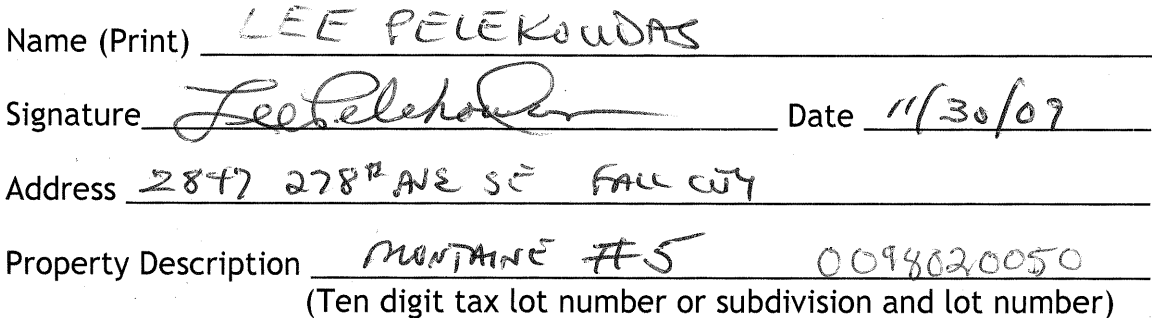 Name (Print) LEE PELEKOUDAS
Signature Lee Pelekoudas Date 11/30/09
Address 2847 278th AVE SE FALL CITY
Property Description MONTAINE #5 0098020050
(Ten digit tax lot number or subdivision and lot number)